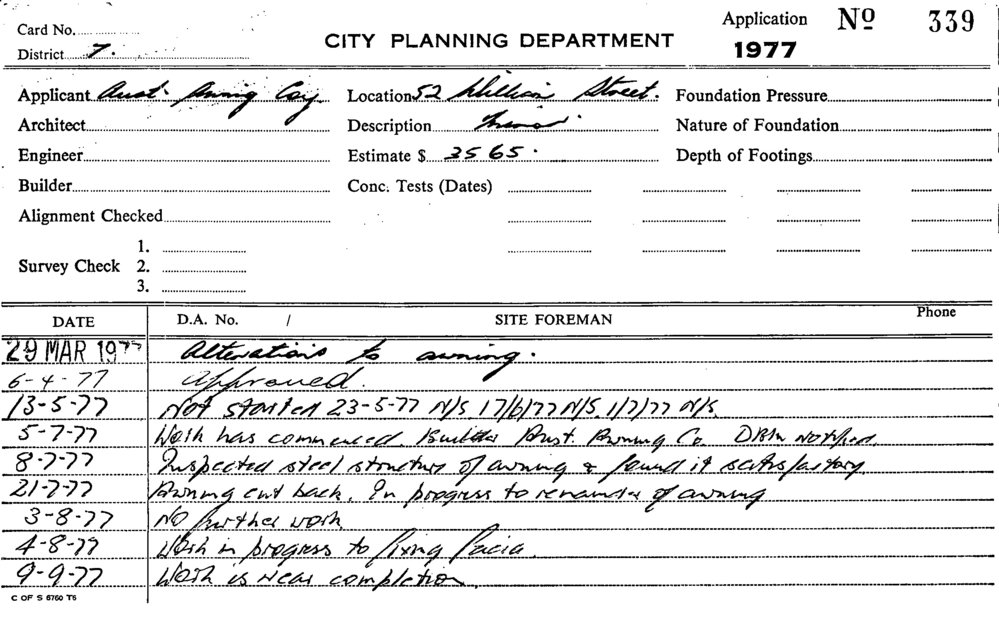 Card No.
CITY PLANNING DEPARTMENT
Application Nº 339
District 7.
1977
Applicant Aust. Awning Coy Location 52 William Street. Foundation Pressure
Architect Description Nature of Foundation
Engineer Estimate $ 3565. Depth of Footings
Builder Conc. Tests (Dates)
Alignment Checked
1.
Survey Check 2.
3.
DATE D.A. No. / SITE FOREMAN Phone
29 MAR 1977 Alterations to awning.
6-4-77 Approved.
13-5-77 Not started 23-5-77 N/S 17/6/77 N/S. 1/7/77 N/S.
5-7-77 Work has commenced Builder Aust. Awning Co. Notified
8-7-77 Inspected steel structure of awning & found it satisfactory
21-7-77 Awning cut back. In progress to remainder of awning
3-8-77 No further work
4-8-77 Work in progress to fixing facia.
9-9-77 Work is near completion.
C OF S 6760 T6